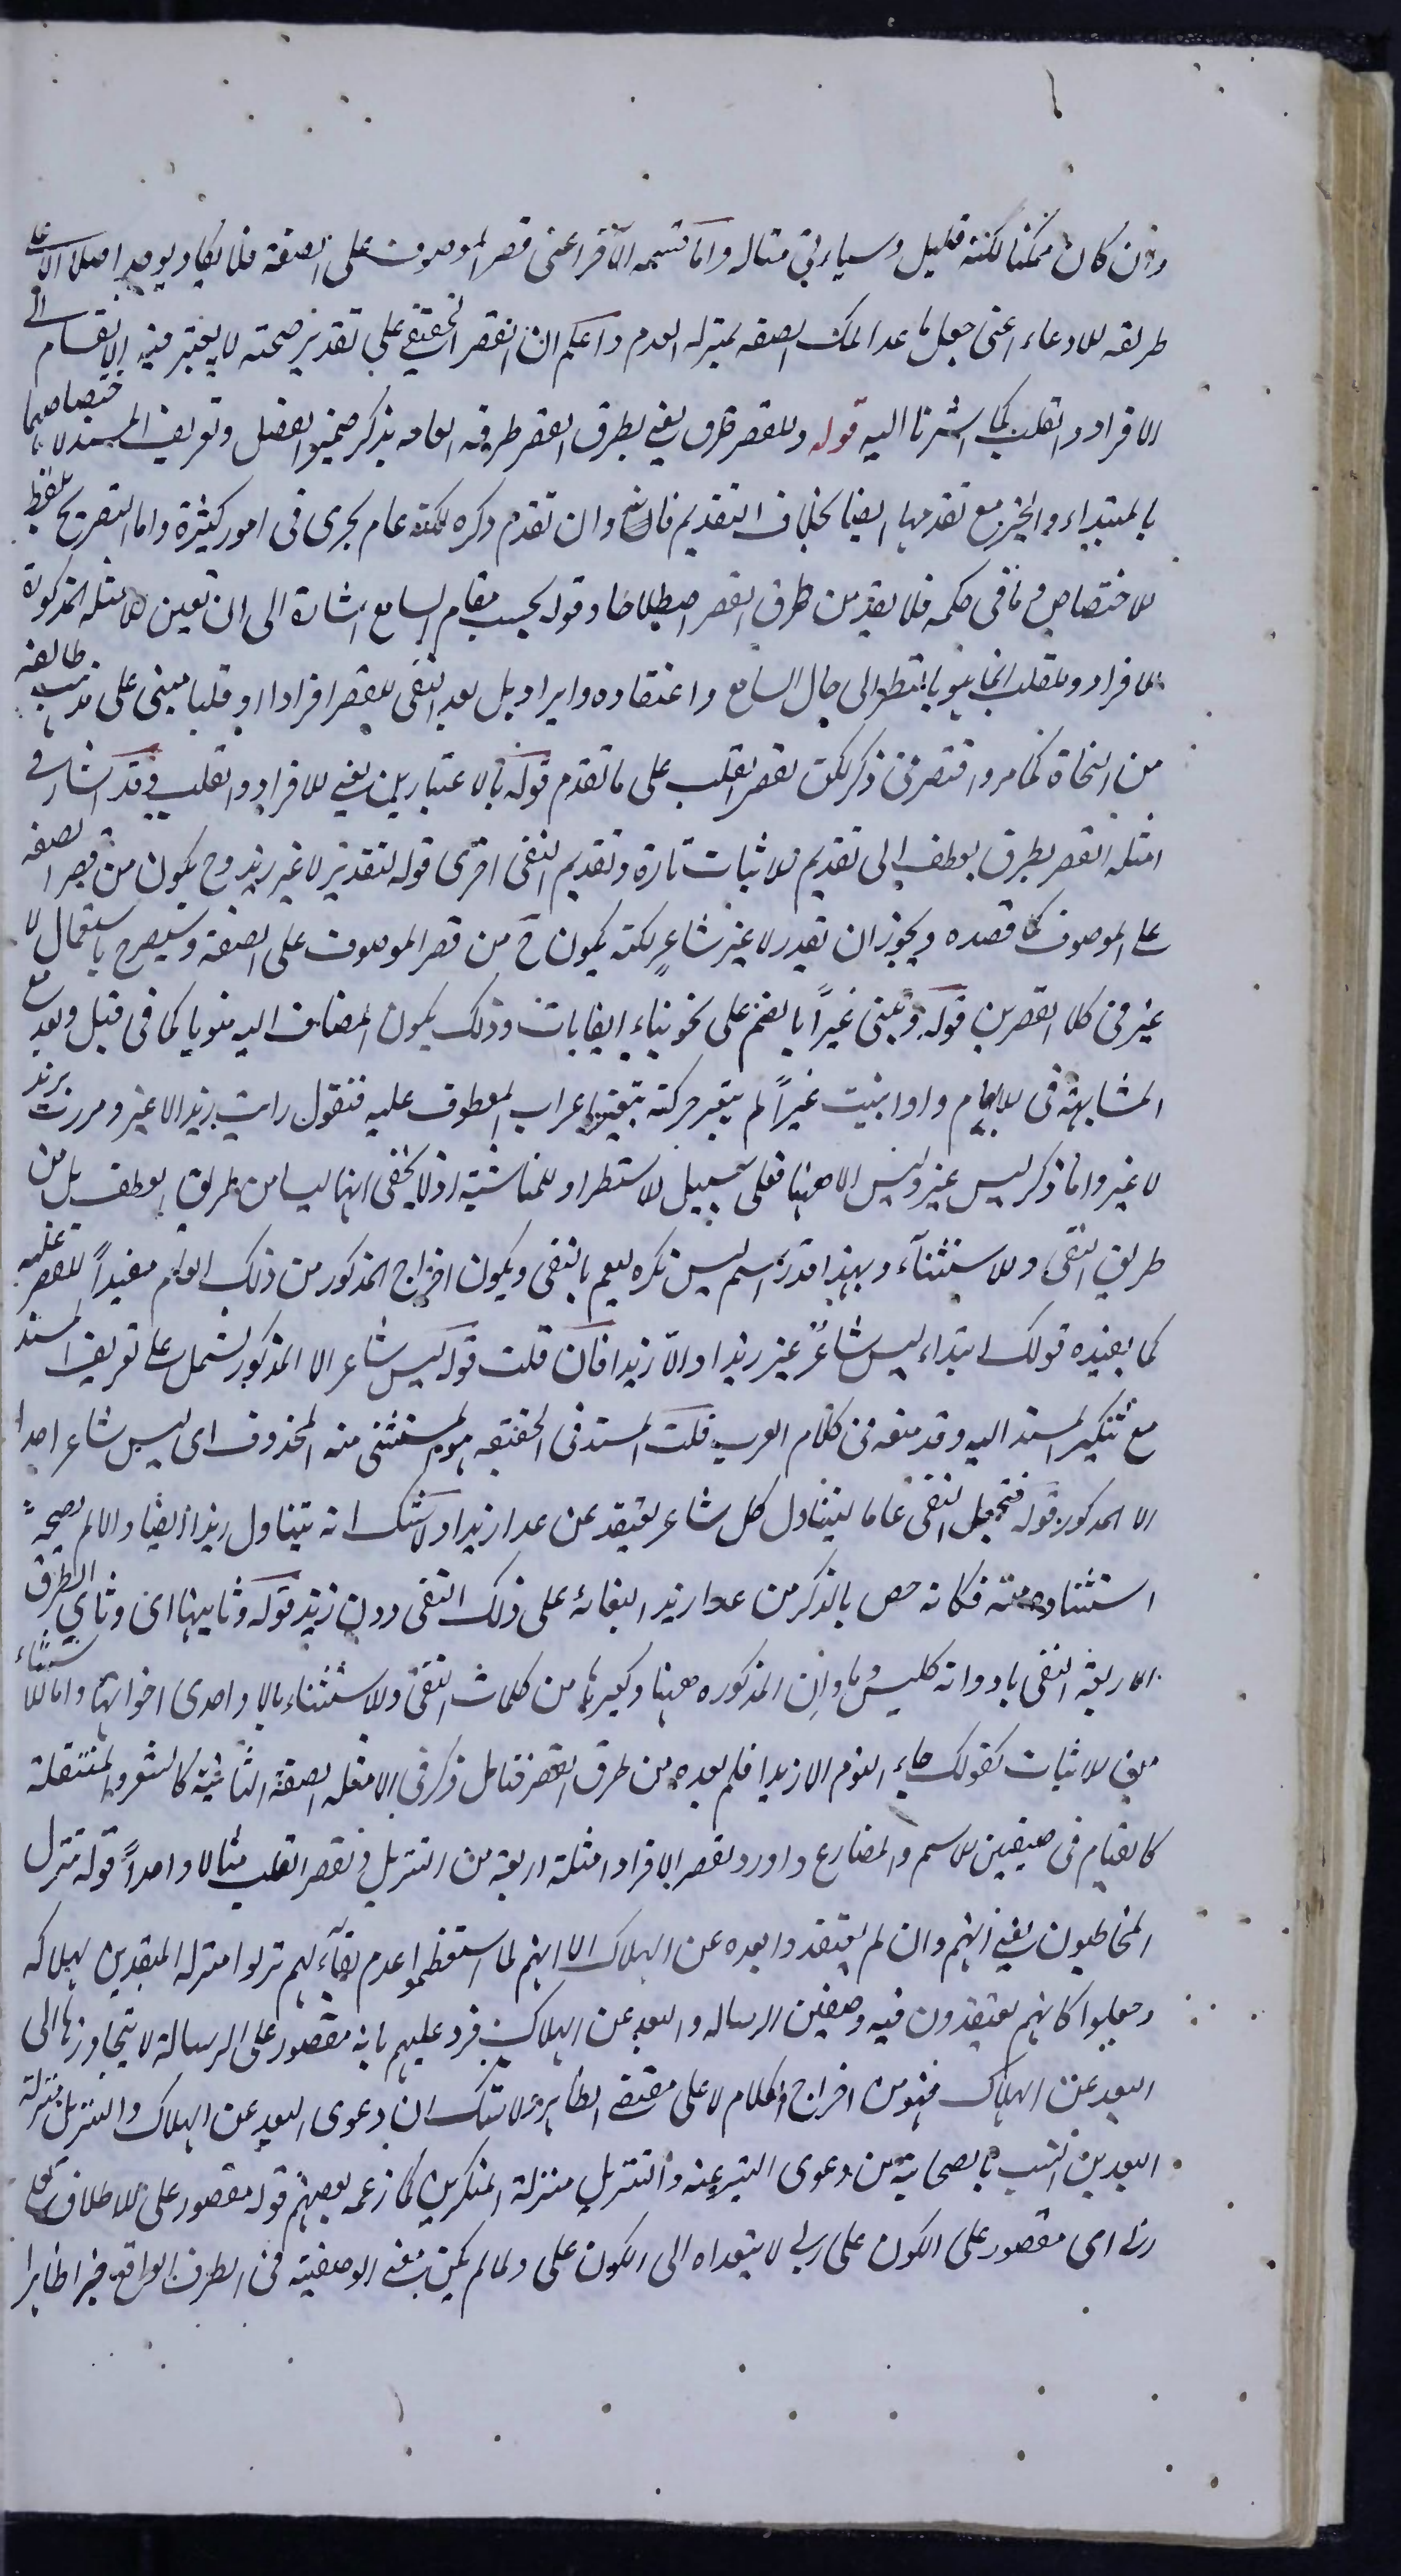 وان كان ممكنا لكنه قليل وسياتي مثاله واما قسيمه الآخر اعنى قصر الموصوف على الصفة فلا يكاد يوجد اصلا الا على
طريقه للادعاء اعنى جعل ما عدا تلك الصفه بمنزله العدم واعلم ان القصر الحقيقي على تقدير صحته لا يعتبر فيه الانقسام الى
الافراد والقلب كما اشرنا اليه قوله وللقصر طرق يعني بطرق القصر طرقه العامه يذكر ضمير الفصل وتعريف المسند لاختصاصهما
بالمبتداء والخبر مع تقدمهما ايضا بخلاف التقديم فانه وان تقدم ذكره لكنه عام يجرى فى امور كثيرة واما التصريح بلفظ
الاختصاص وما فى حكمه فلا يعد من طرق القصر اصطلاحا وقوله بحسب مقام السامع اشارة الى ان تعين الامثله المذكورة
للافراد وللقلب انما هو بالنظر الى حال السامع واعتقاده وايراد بل بعد النفى للقصر افرادا او قلبا مبنى على مذهب طائفه
من النحاة كما مر واقتصر فى ذكر لكن بقصر القلب على ما تقدم قوله بالاعتبارين يعني للافراد والقلب وقد اشار فى
امثله القصر بطرق العطف الى تقديم الاثبات تارة وتقديم النفى اخرى قوله لتقدير لا غير زيد وح يكون من قصر الصفه
على الموصوف كما قصده ويجوز ان يقدر لا غير شاعر لكنه يكون ح من قصر الموصوف على الصفة وسيصرح باستعمال لا
غير فى كلا القصرين قوله وبنى غيراً بالضم على نحو بناء الغايات وذلك يكون المضاف اليه منويا كما فى قبل وبعد مع
المشابهة فى الابهام واذا بنيت غيراً لم يتغير حركته بتغير اعراب المعطوف عليه فتقول رايت زيدا لا غير ومررت بزيد
لا غير وانما ذكر ليس غير وليس الا ههنا فعلى سبيل الاستطراد للمناسبة اذ لا يخفى انها ليسا من طريق العطف بل من
طريق النفى والاستثناء وبهذا قدر اسم ليس نكره ليعم بالنفى ويكون اخراج المذكور من ذلك العام مفيداً للقصر عليه
كما يفيده قولك ابتداء ليس شاعرٌ غير زيد او الا زيدا فان قلت قوله ليس شاعر الا المذكور يشتمل على تعريف المسند
مع تنكير المسند اليه وقد منعه فى كلام العرب قلت المسند فى الحقيقه هو المستثنى منه المحذوف اى ليس شاعر احدا
الا المذكور قوله فتجعل النفى عاما ليتناول كل شاعر يعتقد ممن عدا زيدا ولا شك انه يتناول زيدا ايضا والا لم يصح
استثناؤه منه فكانه خص بالذكر من عدا زيد البقائه على ذلك النفى دون زيد قوله وثانيهما اى وثاني الطرق
الاربعة النفى بادواته كليس وما وان المذكوره ههنا وكغيرها من كلمات النفى والاستثناء بالا واحدى اخواتها واما الاستثناء
من الاثبات كقولك جاء القوم الا زيدا فلم يعده من طرق القصر فتامل ذكر فى الامثله الصفة الثابتة كالشعر والمتنقلة
كالقيام فى صيغتين للاسم والمضارع واورد لقصر الافراد امثلة اربعة من التنزيل ولقصر القلب مثالا واحداً قوله نزل
المخاطبون يعني انهم وان لم يعتقدوا بعده عن الهلاك الا انهم لما استعظموا عدم بقائه لهم نزلوا منزلة المبعدين لهلاكه
وجعلوا كانهم يعتقدون فيه وصفين الرساله والبعد عن الهلاك فرد عليهم بانه مقصور على الرسالة لا يتجاوزها الى
البعد عن الهلاك فهو من اخراج الكلام لا على مقتضى الظاهر ولا شك ان دعوى البعد عن الهلاك والتنزيل منزلة
البعدين انسب بالصحابة من دعوى التبرى عنه والتنزيل منزلة المنكرين كما زعمه بعضهم قوله مقصور على الاطلاق على
ربى اى مقصور على الكون على ربى لا يتعداه الى الكون على ولما لم يكن معنى الوصفية فى الظرف الواقع خبرا ظاهرا